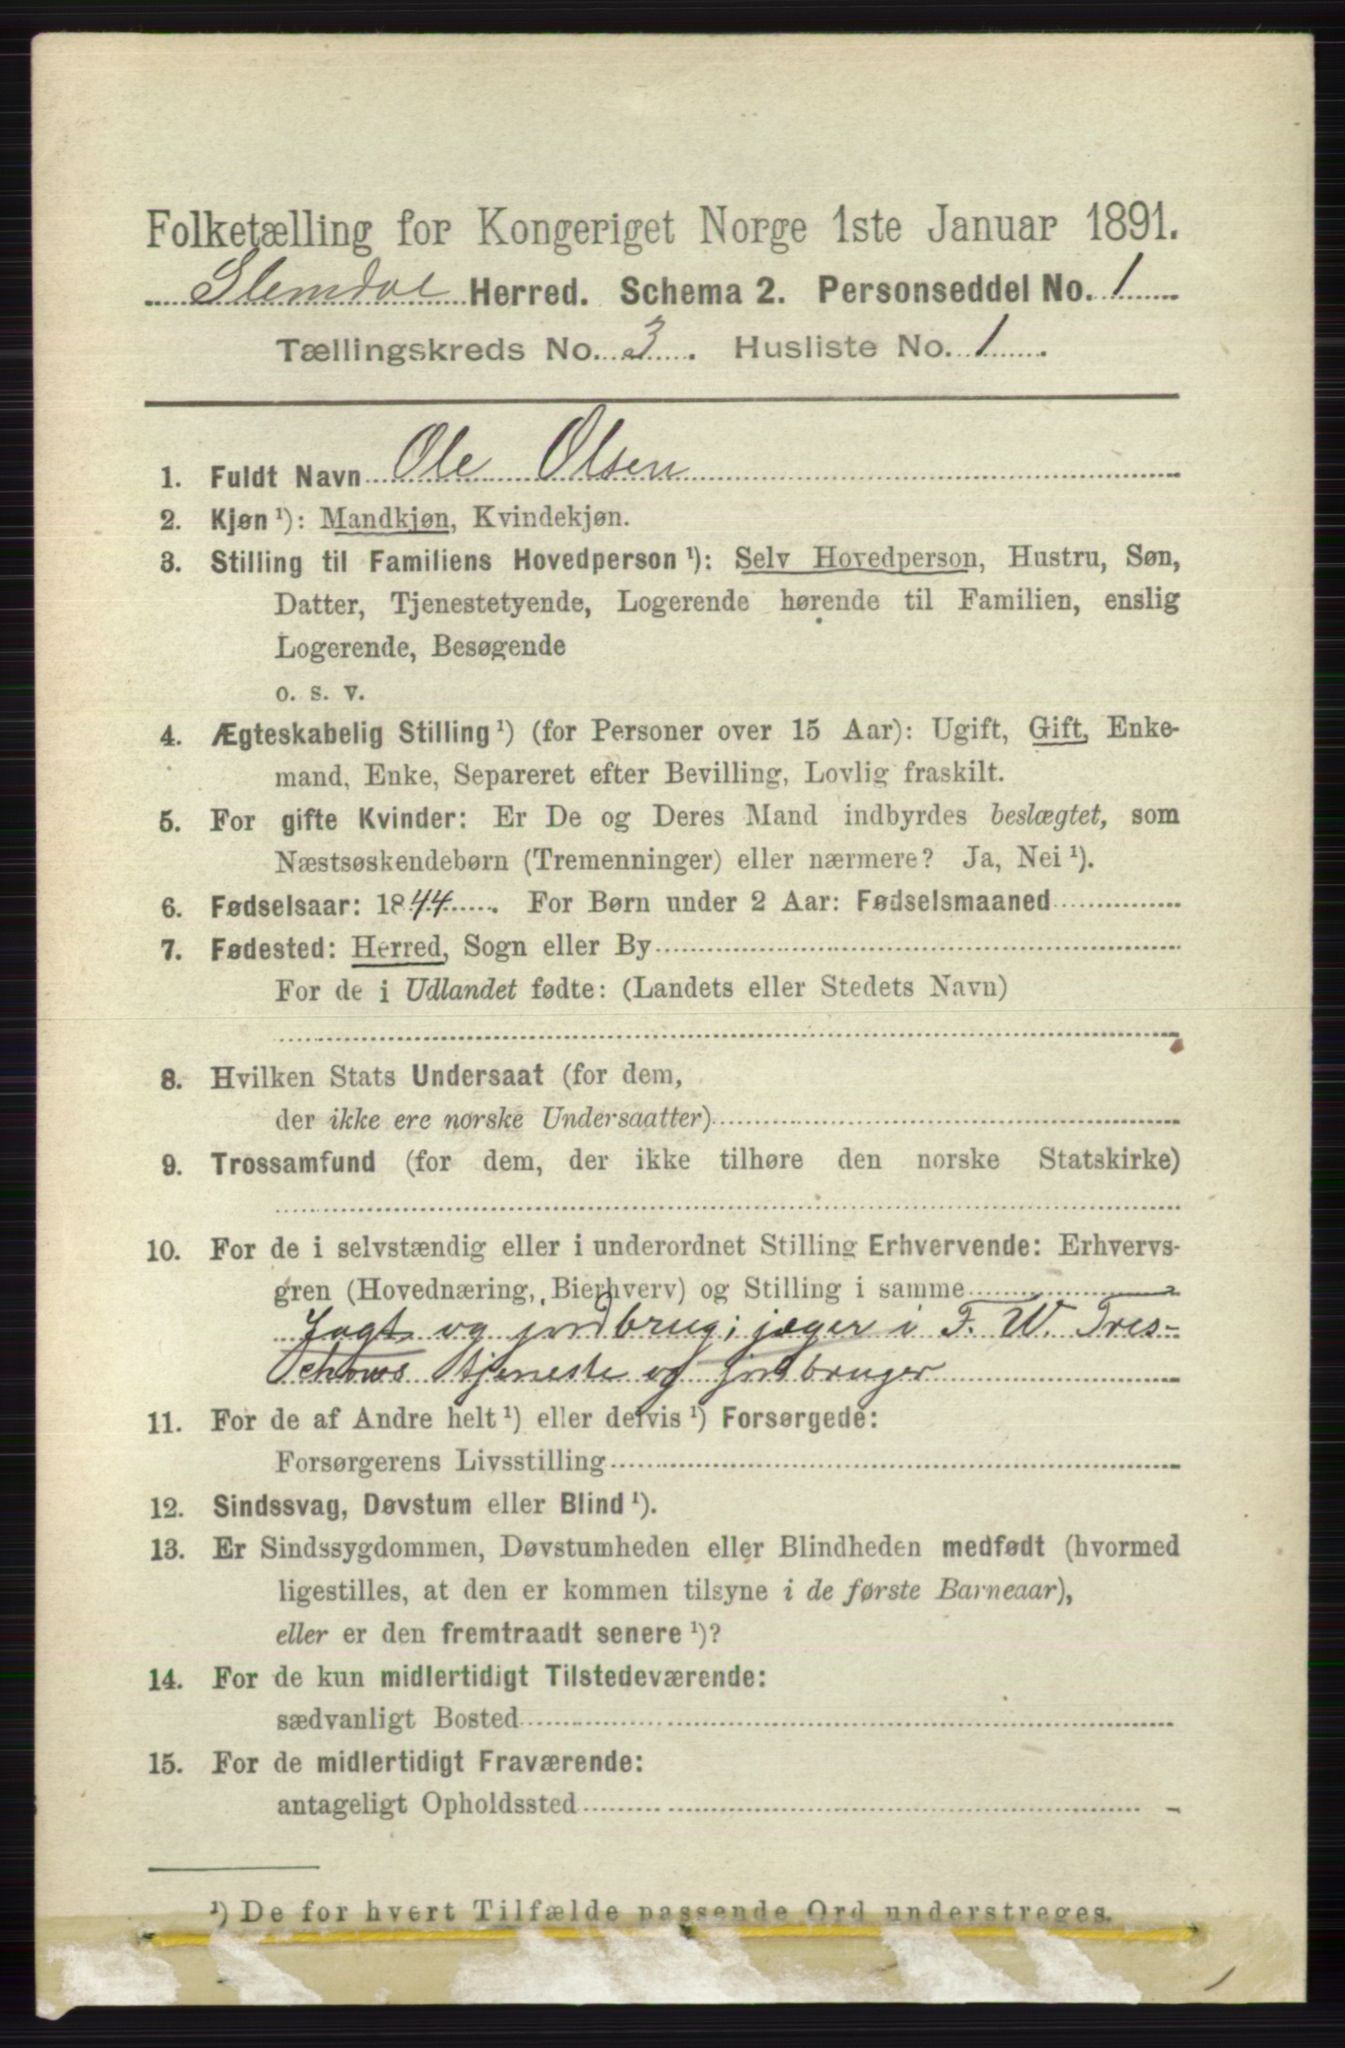 Folketælling for Kongeriget Norge 1ste Januar 1891.
Slemdal Herred. Schema 2. Personseddel No. 1
Tællingskreds No. 3. Husliste No. 1
1. Fuldt Navn Ole Olsen
2. Kjøn ¹): Mandkjøn, Kvindekjøn.
3. Stilling til Familiens Hovedperson ¹): Selv Hovedperson, Hustru, Søn,
Datter, Tjenestetyende, Logerende hørende til Familien, enslig
Logerende, Besøgende
o. s. v.
4. Ægteskabelig Stilling ¹) (for Personer over 15 Aar): Ugift, Gift, Enke-
mand, Enke, Separeret efter Bevilling, Lovlig fraskilt.
5. For gifte Kvinder: Er De og Deres Mand indbyrdes beslægtet, som
Næstsøskendebørn (Tremenninger) eller nærmere? Ja, Nei ¹).
6. Fødselsaar: 1844. For Børn under 2 Aar: Fødselsmaaned
7. Fødested: Herred, Sogn eller By
For de i Udlandet fødte: (Landets eller Stedets Navn)
8. Hvilken Stats Undersaat (for dem,
der ikke ere norske Undersaatter)
9. Trossamfund (for dem, der ikke tilhøre den norske Statskirke)
10. For de i selvstændig eller i underordnet Stilling Erhvervende: Erhvervs-
gren (Hovednæring, Bierhverv) og Stilling i samme
Jagt og jordbrug; jæger i F. W. Tres-
chows tjeneste og jordbruger
11. For de af Andre helt ¹) eller delvis ¹) Forsørgede:
Forsørgerens Livsstilling
12. Sindssvag, Døvstum eller Blind ¹).
13. Er Sindssygdommen, Døvstumheden eller Blindheden medfødt (hvormed
ligestilles, at den er kommen tilsyne i de første Barneaar),
eller er den fremtraadt senere ¹)?
14. For de kun midlertidigt Tilstedeværende:
sædvanligt Bosted
15. For de midlertidigt Fraværende:
antageligt Opholdssted
¹) De for hvert Tilfælde passende Ord understreges.
1